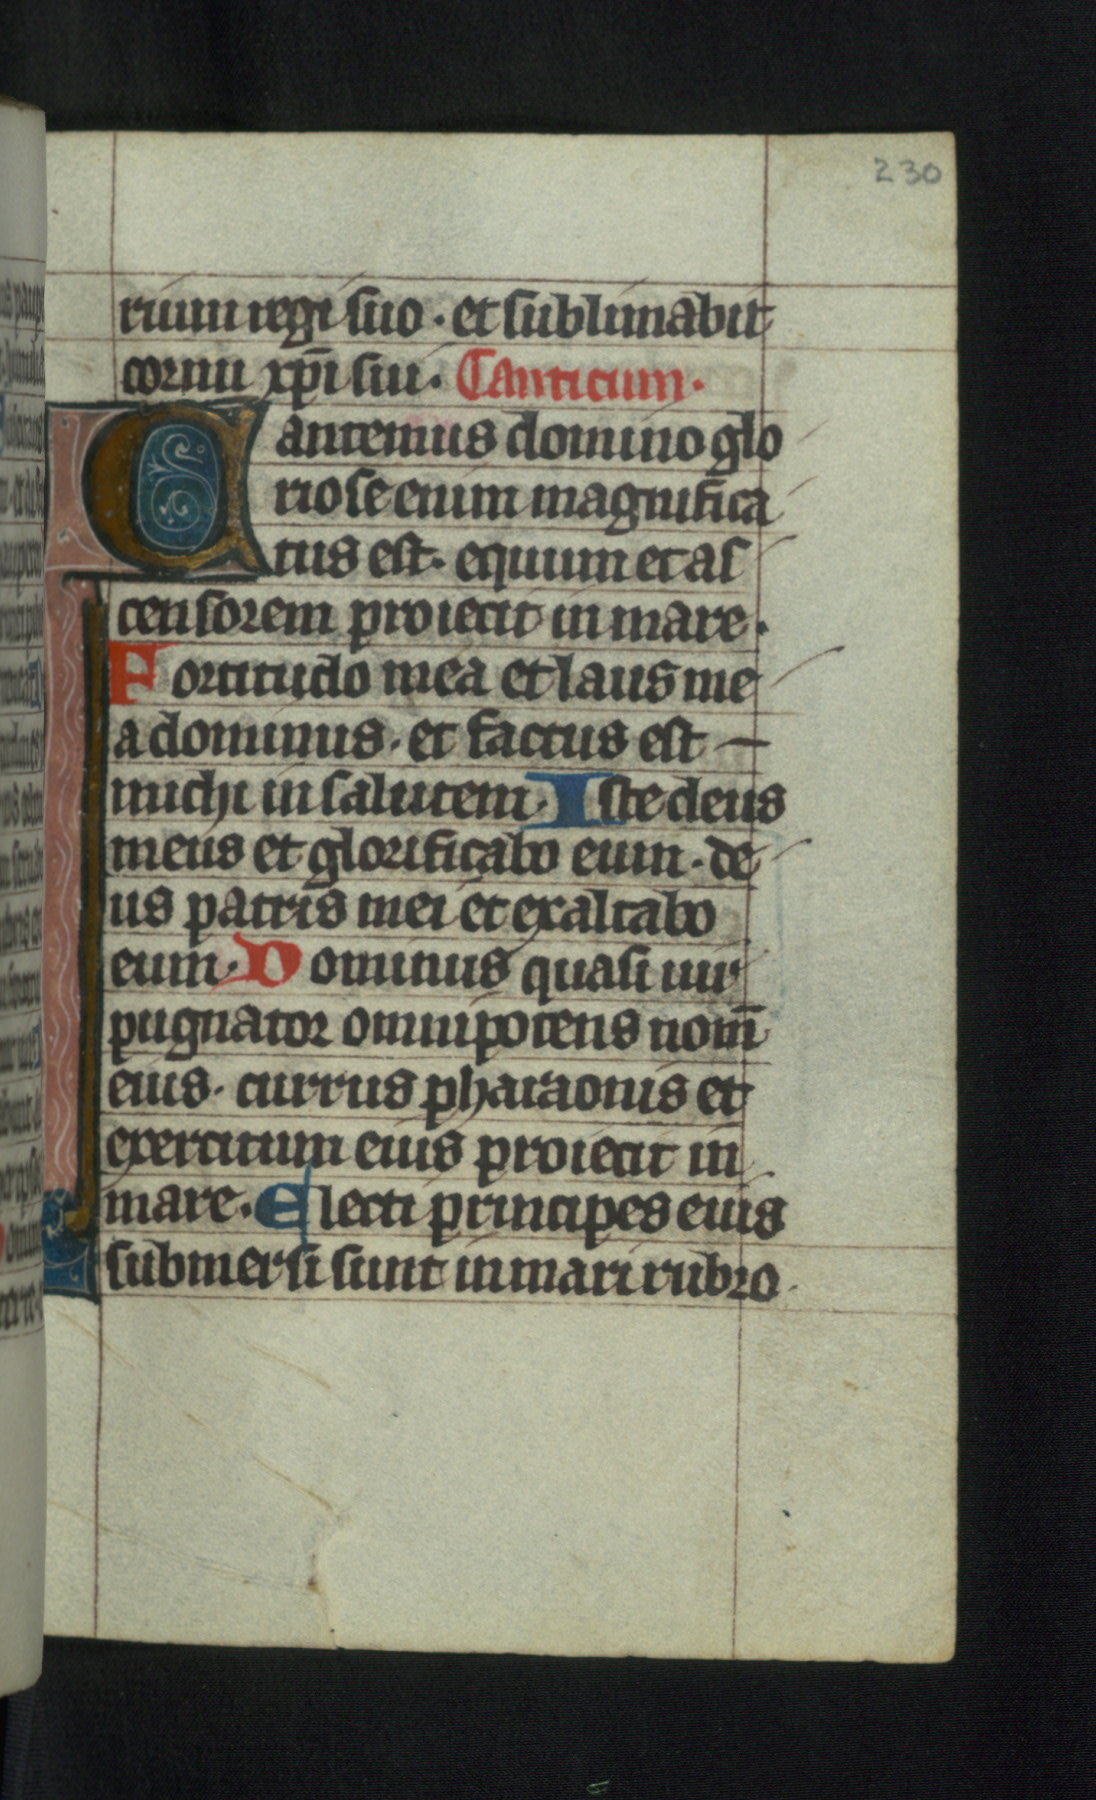 230
rium regi suo · et sublimabit
cornu xp̄i sui · Canticum ·
Cantemus domino glo
riose enim magnifica
tus est · equum et as
censorem proiecit in mare ·
Fortitudo mea et laus me
a dominus · et factus est
michi in salutem · Iste deus
meus et glorificabo eum · de
us patris mei et exaltabo
eum · Dominus quasi uir
pugnator omnipotens nom̄
eius · currus pharaonis et
exercitum eius proiecit in
mare · Electi principes eius
submersi sunt in mari rubro ·